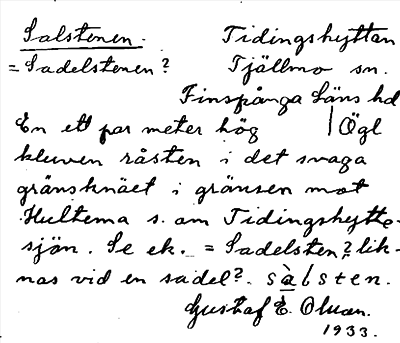 Salstenen. Tidingshyttan
= Sadelstenen? Tjällmo sn.
Finspånga läns hd
En ett par meter hög | Ögl
kluven råsten i det svaga
gränsknäet i gränsen mot
Hultema s. om Tidingshytte-
sjön. Se ek. = Sadelsten?, lik-
nas vid en sadel?. sàlsten.
Gustaf E. Olsson.
1933.